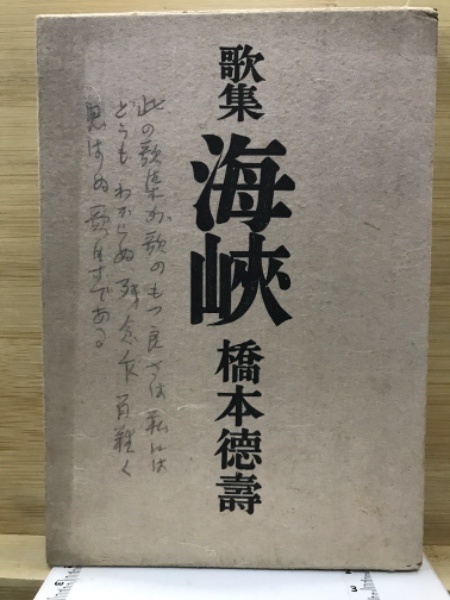 歌集
海峽
橋本德壽
此の歌集が歌のもつ良さは私には
どうもわからぬ残念乍有難く
思はぬ歌集である
3